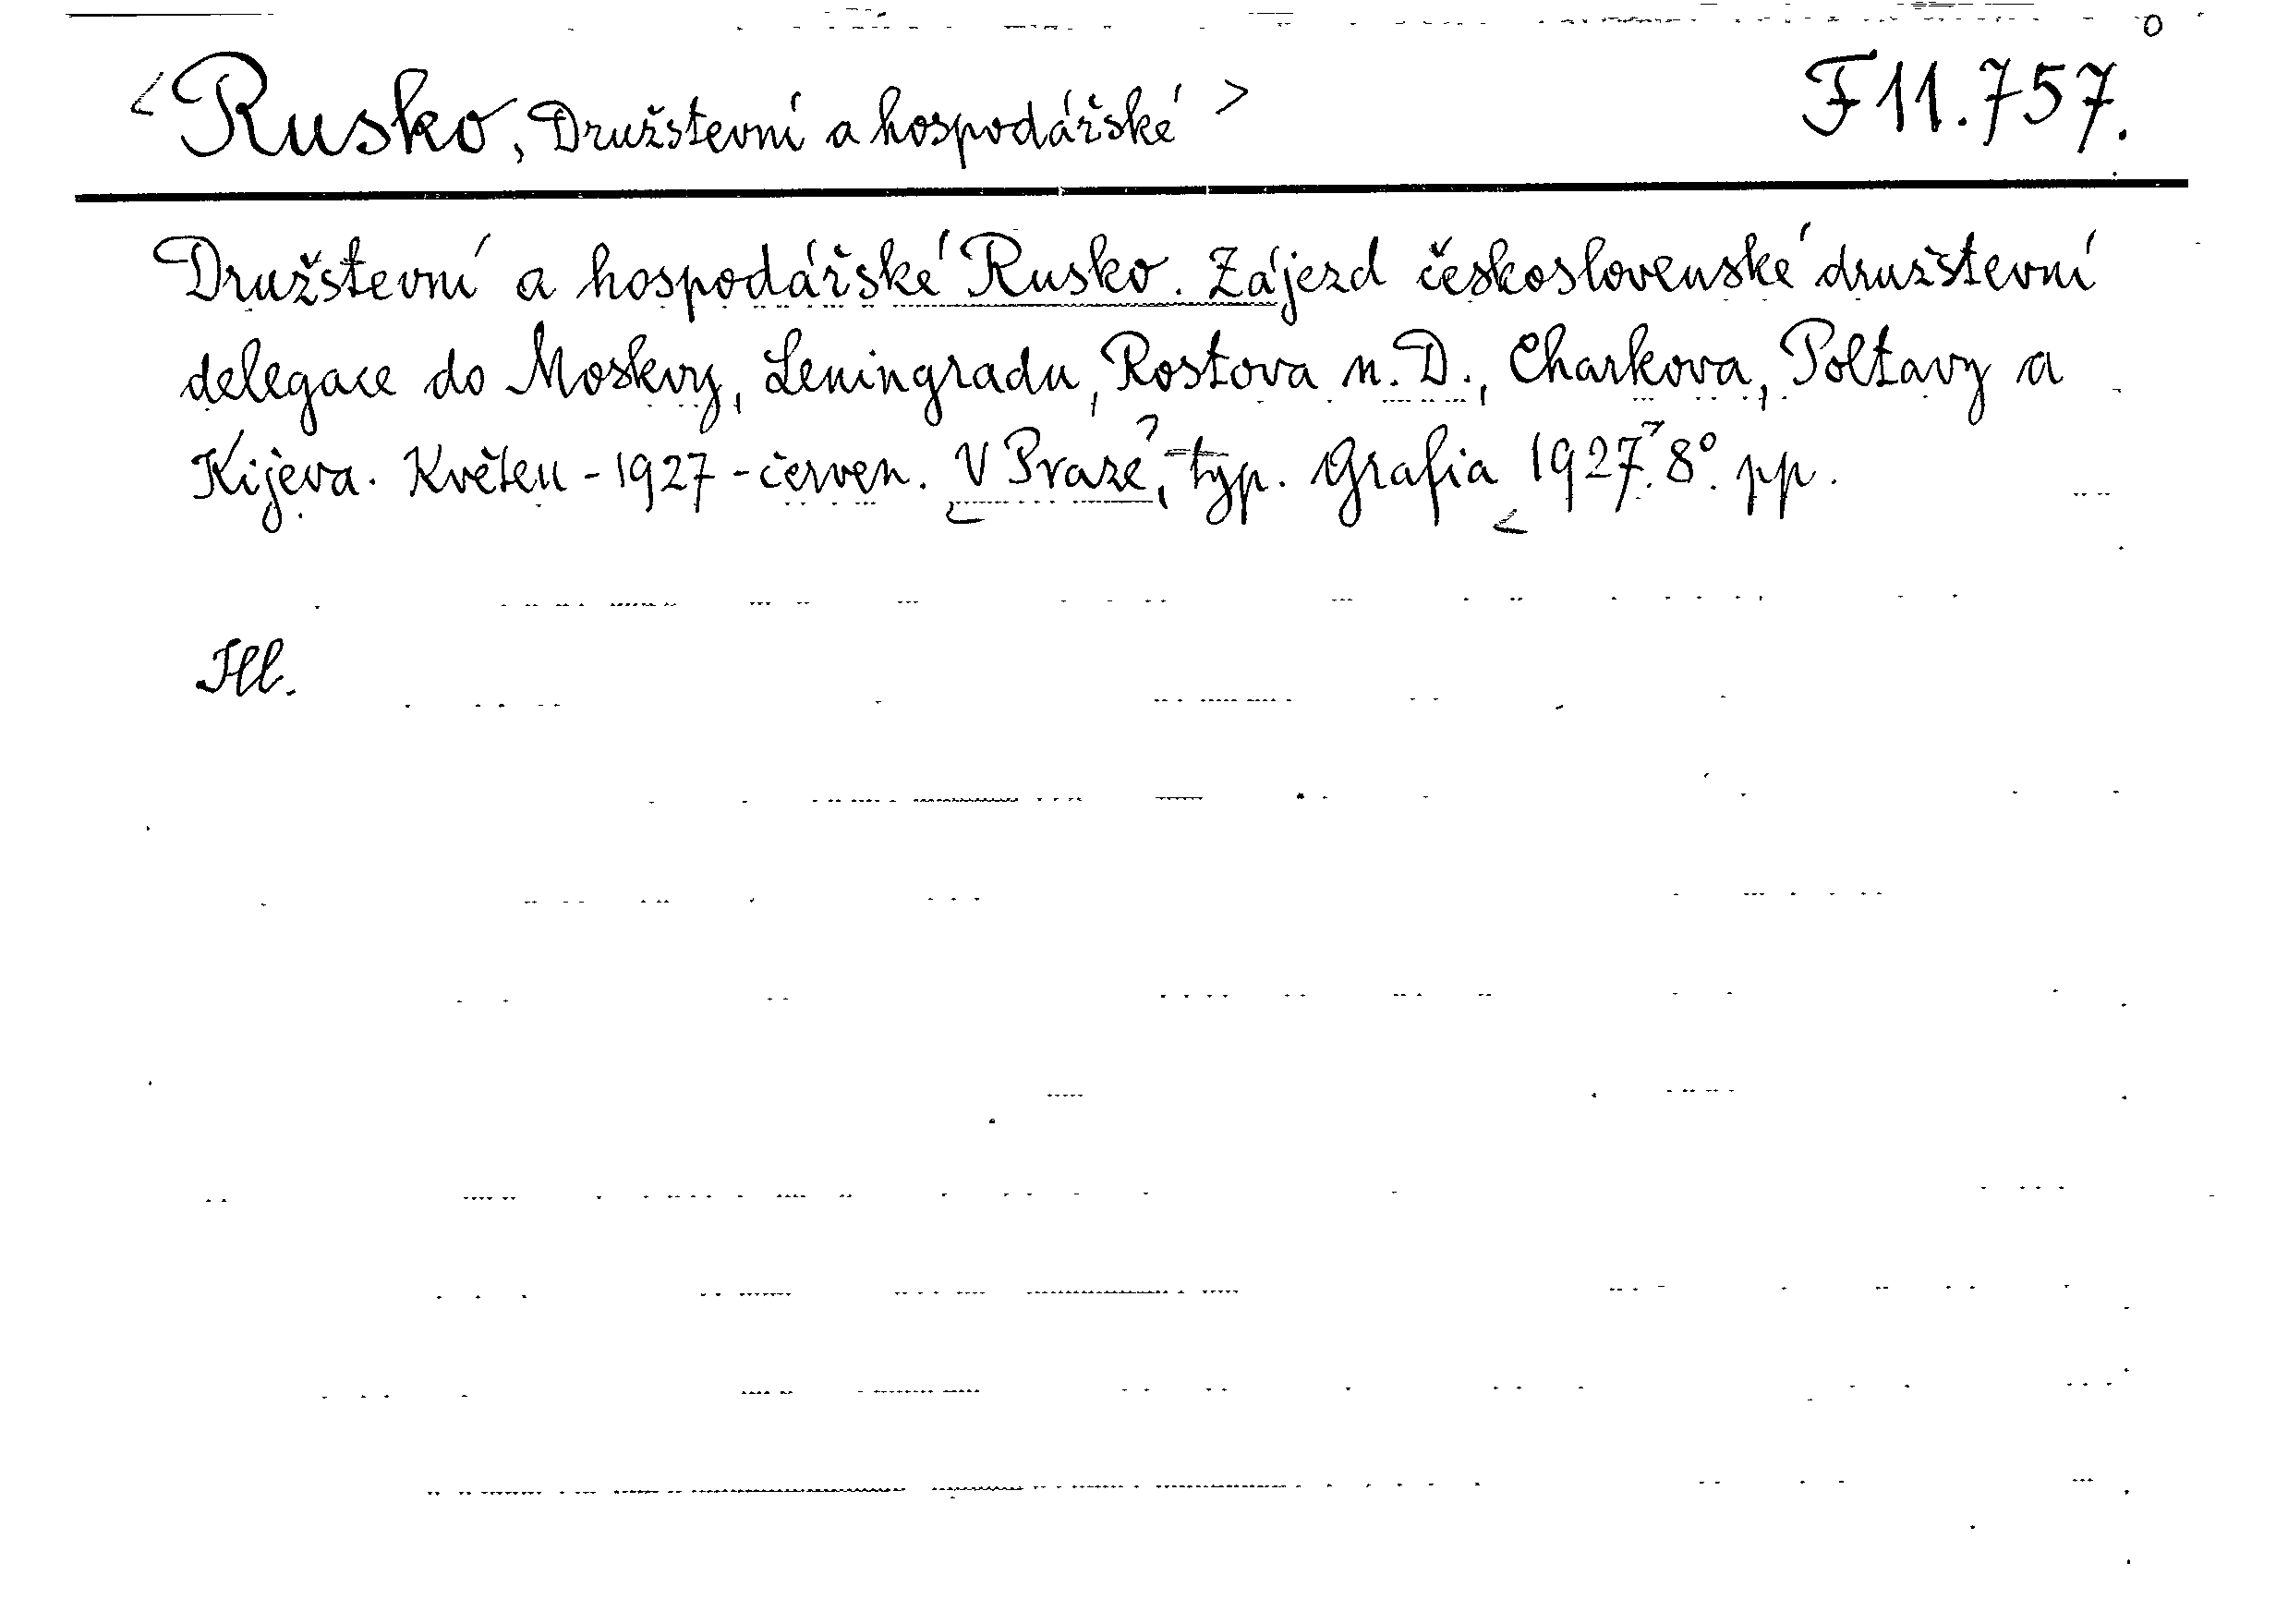 <Rusko, Družstevní a hospodářské> F 11.757.
Družstevní a hospodářské Rusko. Zájezd československé družstevní
delegace do Moskvy, Leningradu, Rostova n. D., Charkova, Poltavy a
Kijeva. Květen - 1927 - červen. V Praze, typ. Grafia 1927. 8° pp.
Ill.